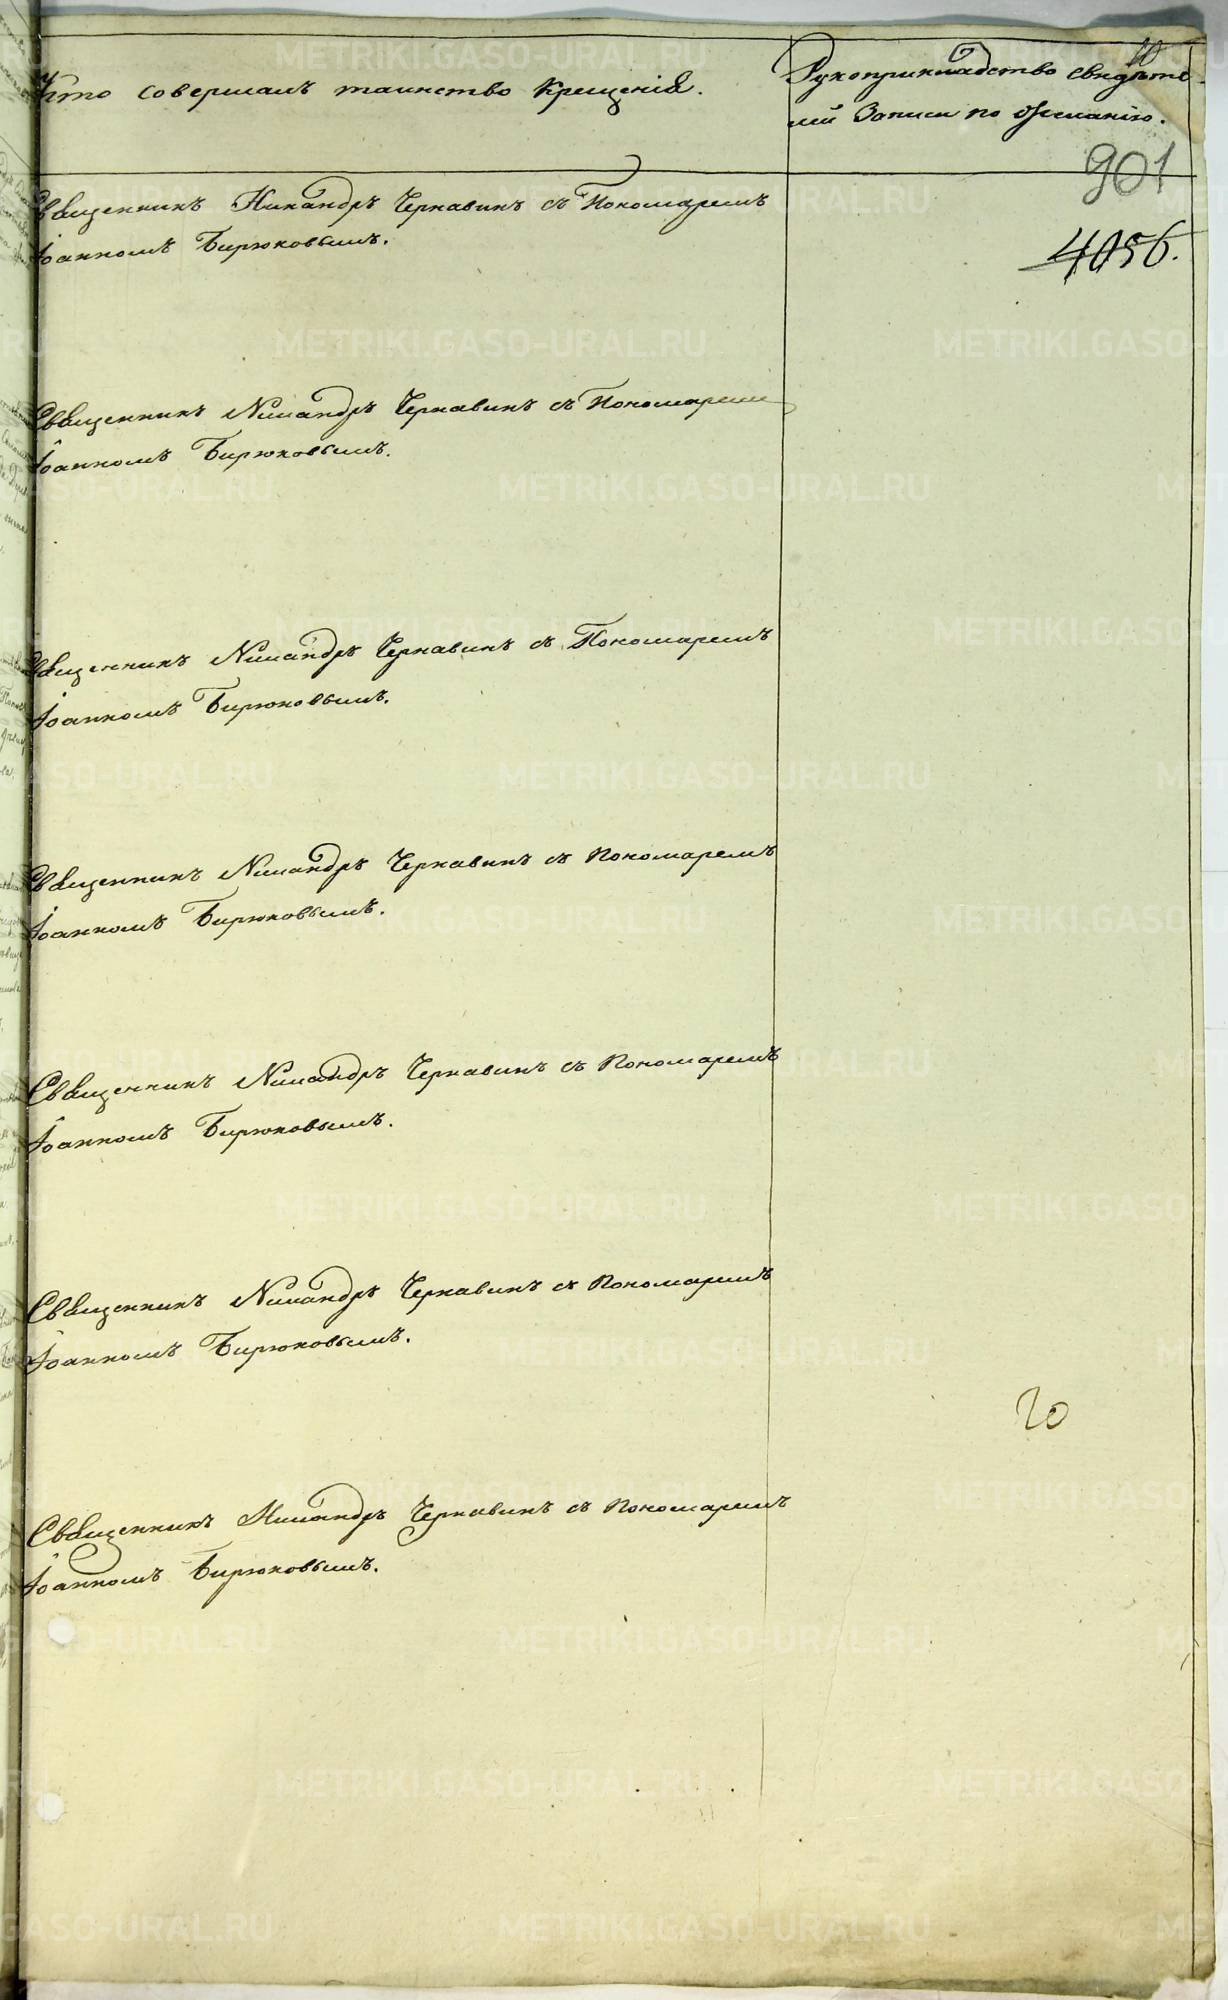 Кто совершалъ таинство Крещенія.
Рукоприкладство свидѣте-
лей Записи по желанію.
901
4056.
Священникъ Никандръ Чернавинъ съ Пономаремъ
Іоанномъ Бирюковымъ.
Священникъ Никандръ Чернавинъ съ Пономаремъ
Іоанномъ Бирюковымъ.
Священникъ Никандръ Чернавинъ съ Пономаремъ
Іоанномъ Бирюковымъ.
Священникъ Никандръ Чернавинъ съ Пономаремъ
Іоанномъ Бирюковымъ.
Священникъ Никандръ Чернавинъ съ Пономаремъ
Іоанномъ Бирюковымъ.
Священникъ Никандръ Чернавинъ съ Пономаремъ
Іоанномъ Бирюковымъ.
20
Священникъ Никандръ Чернавинъ съ Пономаремъ
Іоанномъ Бирюковымъ.
METRIKI.GASO-URAL.RU